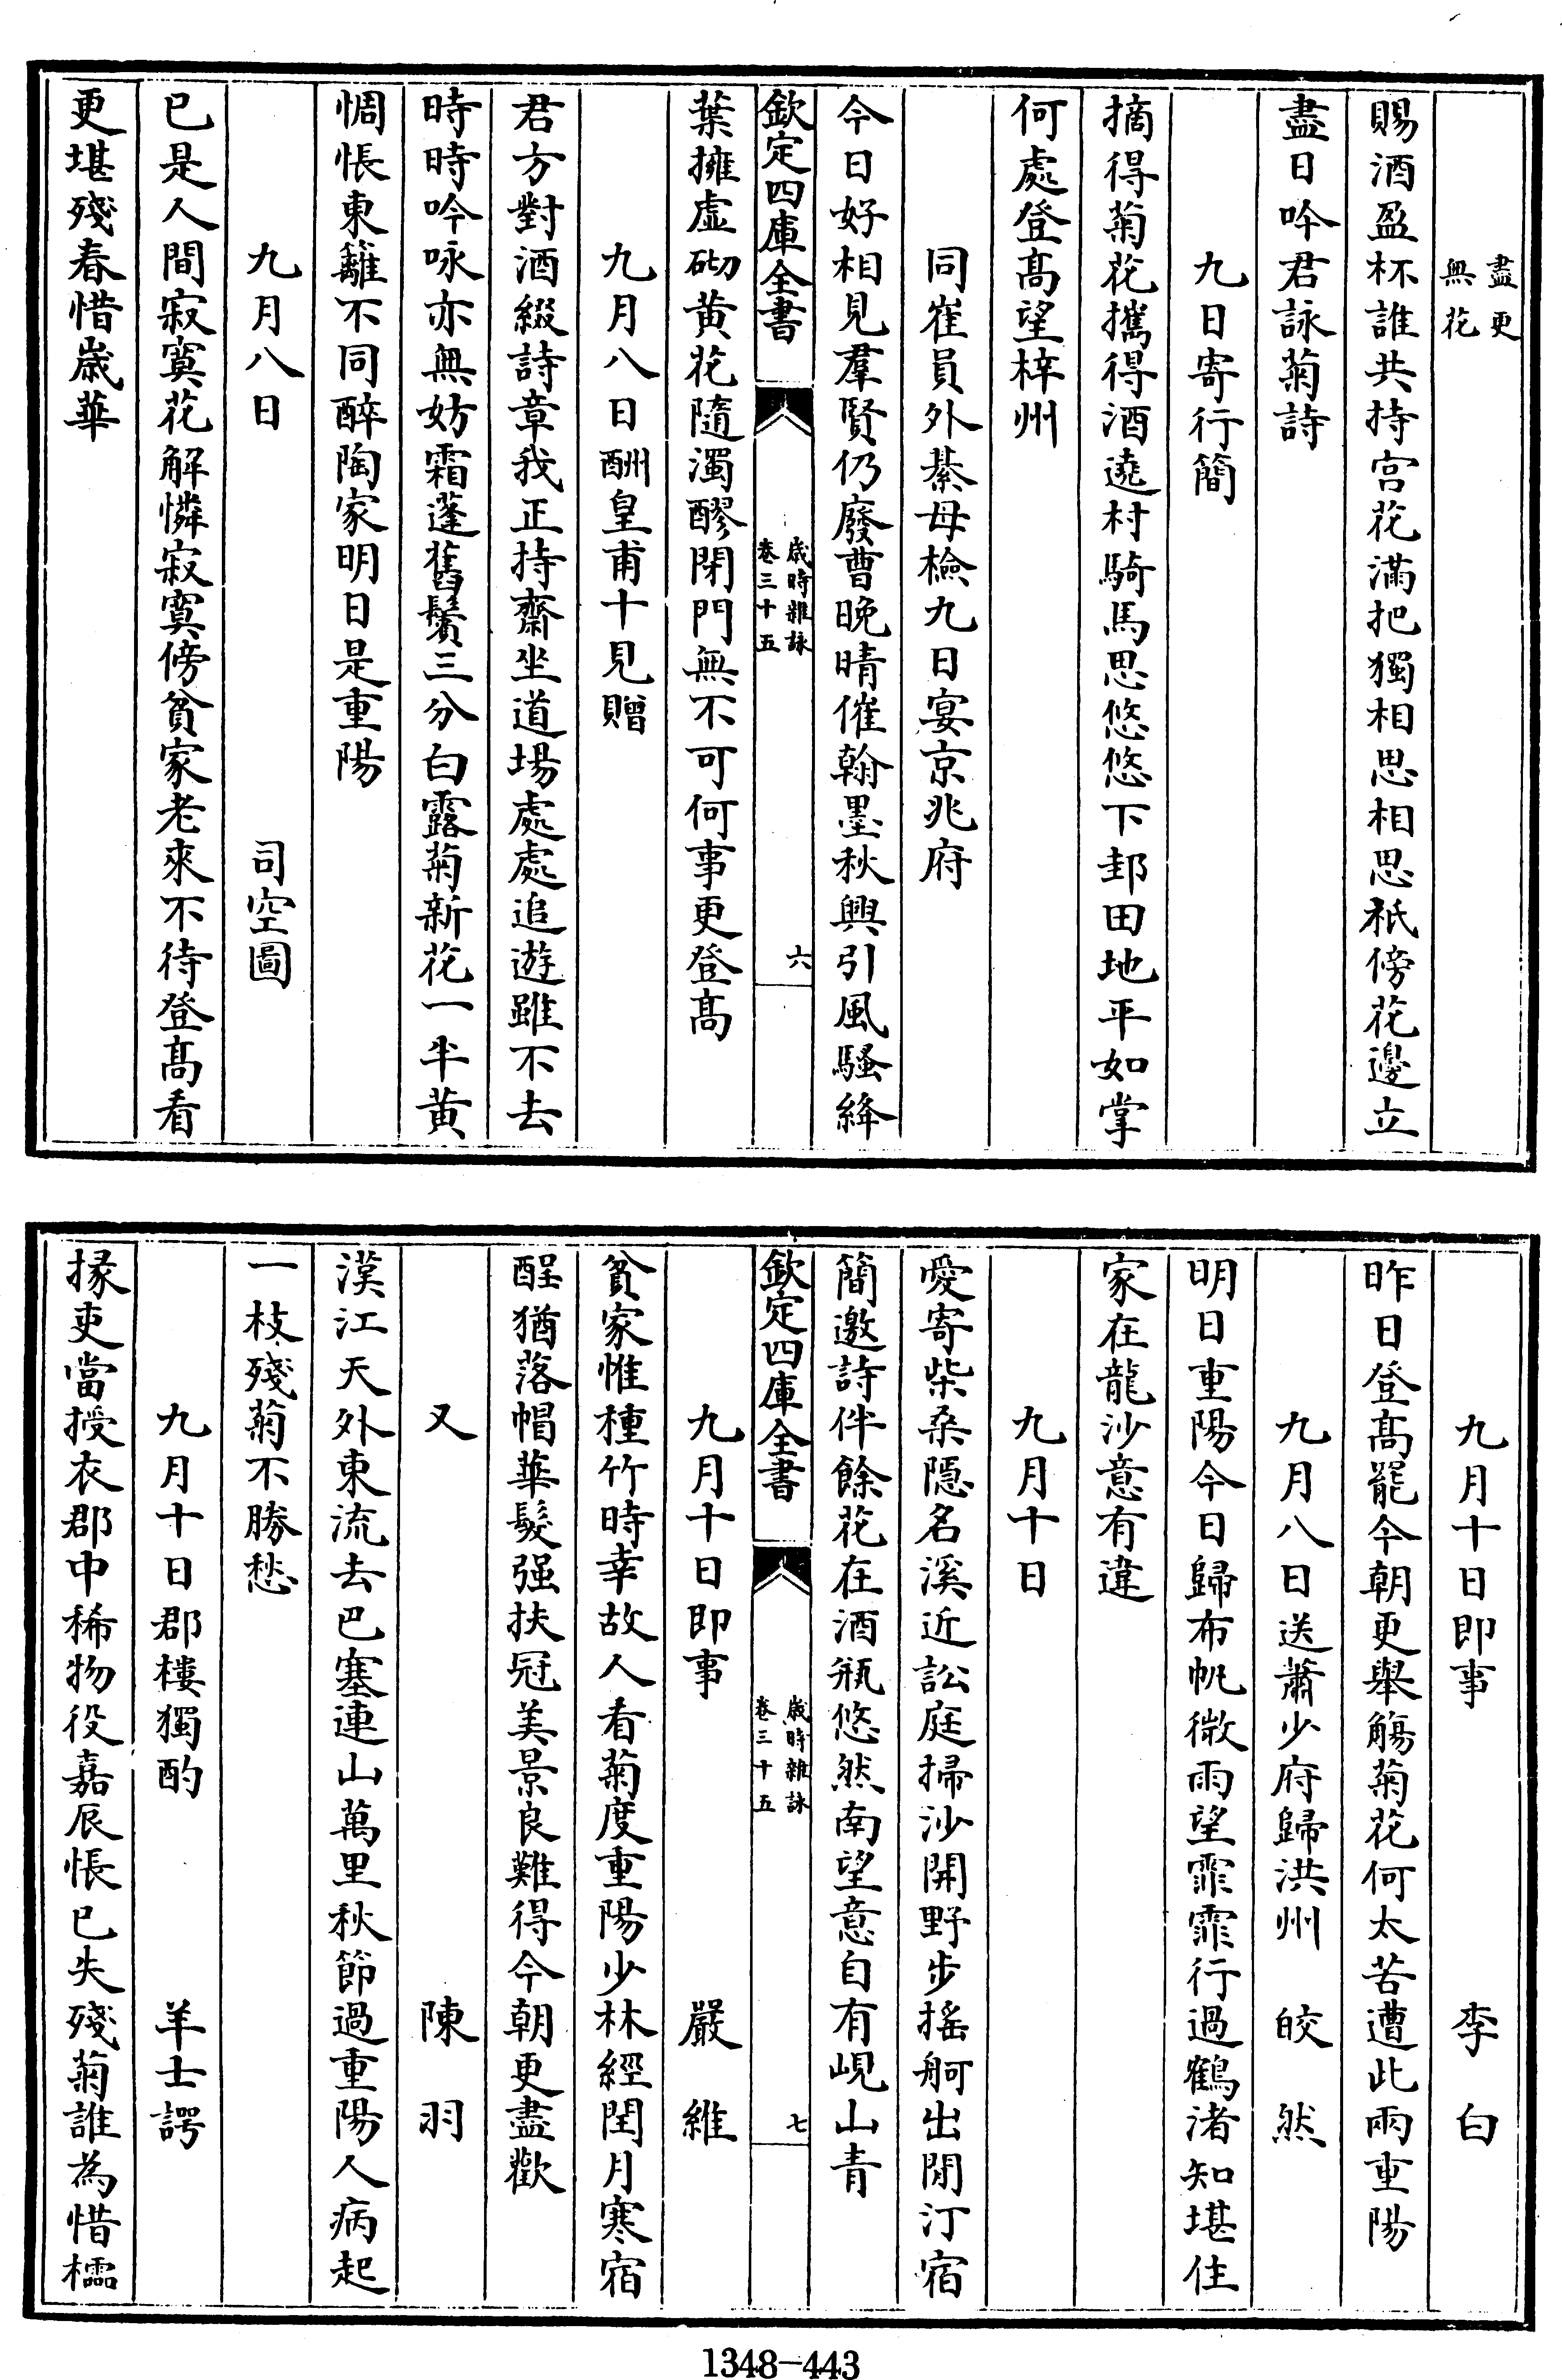 盡更
無花
賜酒盈杯誰共持宫花滿把獨相思相思秖傍花邊立
盡日吟君詠菊詩
九日寄行簡
摘得菊花攜得酒遶村騎馬思悠悠下邽田地平如掌
何處登髙望梓州
同崔員外綦毋檢九日宴京兆府
今日好相見羣賢仍廢曹晩晴催翰墨秋興引風騷絳
欽定四庫全書
歳時雜詠
卷三十五
六
葉擁虚砌黄花隨濁醪閉門無不可何事更登髙
九月八日酬皇甫十見贈
君方對酒綴詩章我正持齋坐道場處處追遊雖不去
時時吟咏亦無妨霜蓬舊鬢三分白露菊新花一半黄
惆悵東籬不同醉陶家明日是重陽
九月八日 司空圖
已是人間寂寞花解憐寂寞傍貧家老來不待登髙看
更堪殘春惜歳華
九月十日即事 李白
昨日登髙罷今朝更舉觴菊花何太苦遭此兩重陽
九月八日送蕭少府歸洪州 皎然
明日重陽今日歸布帆微雨望霏霏行過鶴渚知堪住
家在龍沙意有違
九月十日
愛寄柴桑隠名溪近訟庭掃沙開野步搖舸出閒汀宿
簡邀詩伴餘花在酒瓶悠然南望意自有峴山青
欽定四庫全書
歳時雜詠
卷三十五
七
九月十日即事 嚴維
貧家惟種竹時幸故人看菊度重陽少林經閏月寒宿
酲猶落帽華髮强扶冠美景良難得今朝更盡歡
又 陳羽
漢江天外東流去巴塞連山萬里秋節過重陽人病起
一枝殘菊不勝愁
九月十日郡樓獨酌 羊士諤
掾吏當授衣郡中稀物役嘉辰悵已失殘菊誰為惜櫺
1348-443